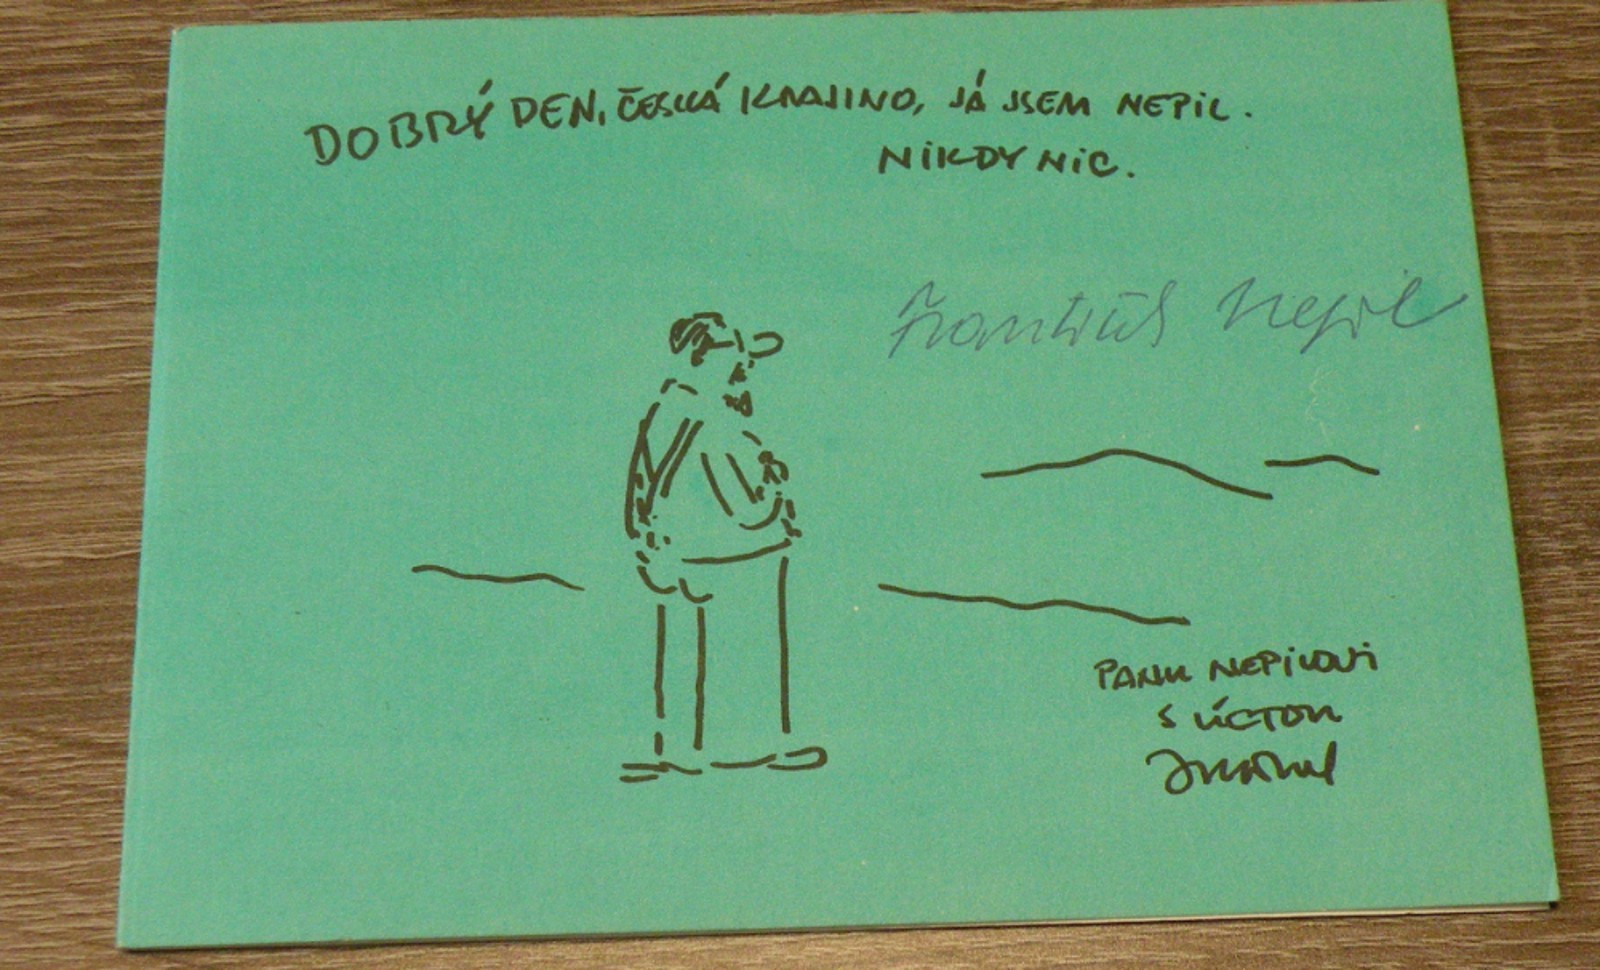 DOBRÝ DEN, ČESKÁ KRAJINO, JÁ JSEM NEPIL.
NIKDY NIC.
František Nepil
PANU NEPILOVI
S ÚCTOU